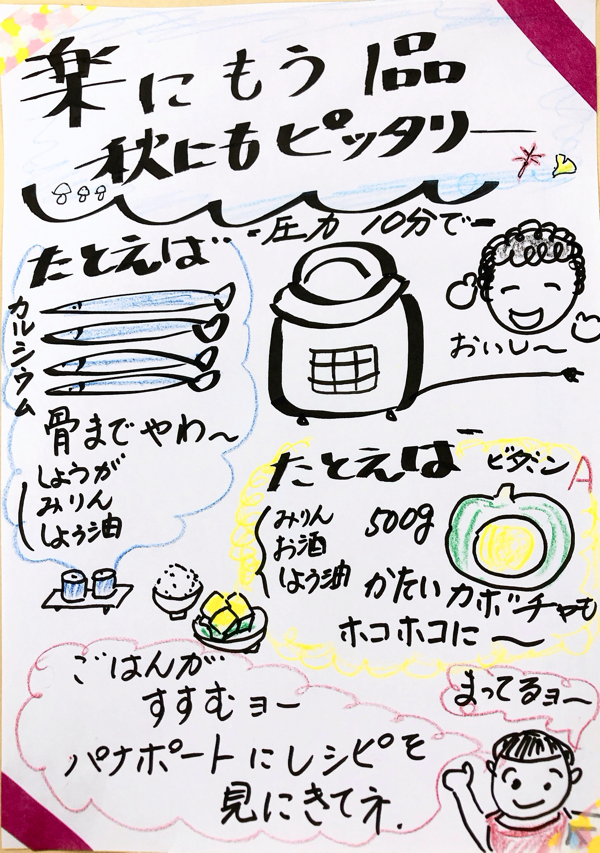 楽にもう1品
秋にもピッタリー
-圧力 10分で-
たとえば
カルシウム
おいし〜
骨までやわ〜
しょうが
みりん
しょう油
たとえば
ビタミンA
みりん
お酒
しょう油
500g
かたいカボチャも
ホコホコに〜
ごはんが
すすむヨー
パナポートにレシピを
見にきてネ.
まってるヨ〜